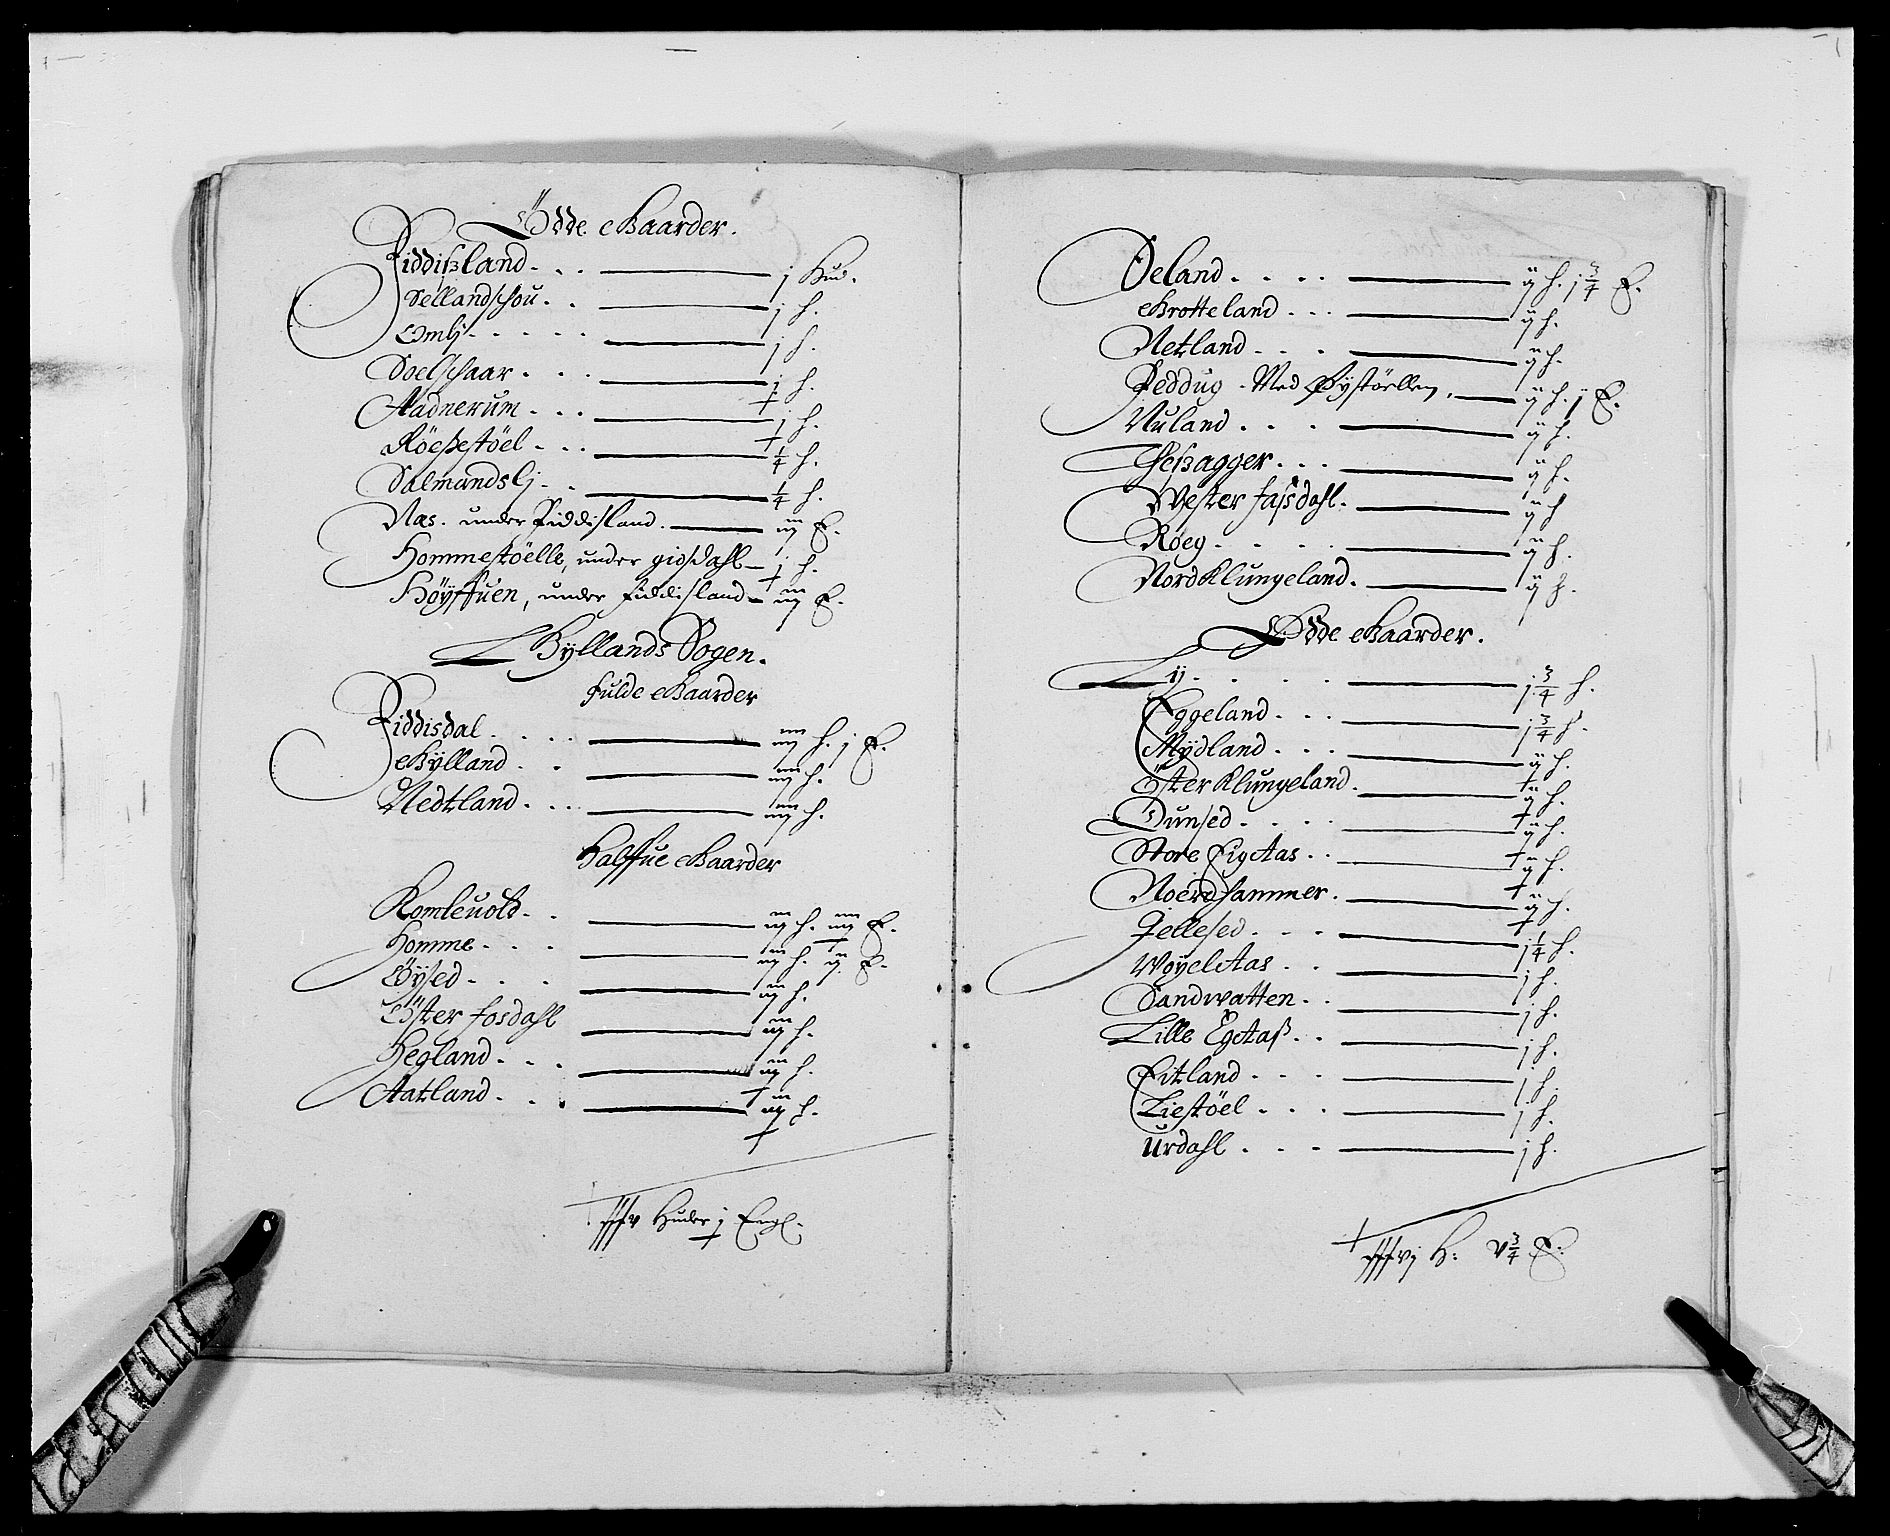 Ödde Gaarder.
Fiddißland. . . j Hud.
Sellandschou. . . j h.
Omlj. . . . . j h.
Soelschaar . . . j h.
Aadnerum . . . j h.
Röeßestöel . . . ¼ h.
Salmandslj . . ¼ h.
Næs. under Fiddisland. iij E.
Hommestöelle, under giosdahl j h.
Höyffuen, under Fiddisland iij E.
Gyllands Sogen.
fulde Gaarder
Fiddisdal. . . . iiij h. j E.
Gylland . . iiij h.
Nedtland. . . . iiij h.
Halffue Gaarder
Romleuold. . iij h. iiij E.
Homme. . . iij h. ij E.
Öysed. . . . iij h.
Öster fosdahl iij h.
Hegland. . . . iij h.
Aatland. . . . iij h.
Huder j Engl.
Oeland. . . . ij h. j ¾ E.
Grotteland . . . ij h.
Netland. . . . ij h.
Peddug. Med Øystöellen. ij h. j E.
Nuland . . . . ij h.
Heßagger. . . . ij h.
Wester fassdahl. ij h
Röeg. . . . . ij h.
Nord Klungeland. ij h.
Ödde Gaarder.
Lij. . . . . j ¾ h.
Eggeland. . . . j ¾ h.
Mydland. . . . ij h.
Öster Klungeland. ij h.
Dunsed. . . . . ij h.
Store Eigaas. . . ij h.
Noerdhammer. ij h.
Jellesed. . . . j ¼ h.
Woyelaas . . . j h.
Sandwatten. . . j h.
Lille Egaaß. . . j h.
Eitland . . . j h.
Liestöel . . . j h.
Urdahl . . . j h.
H: v ¾ E: